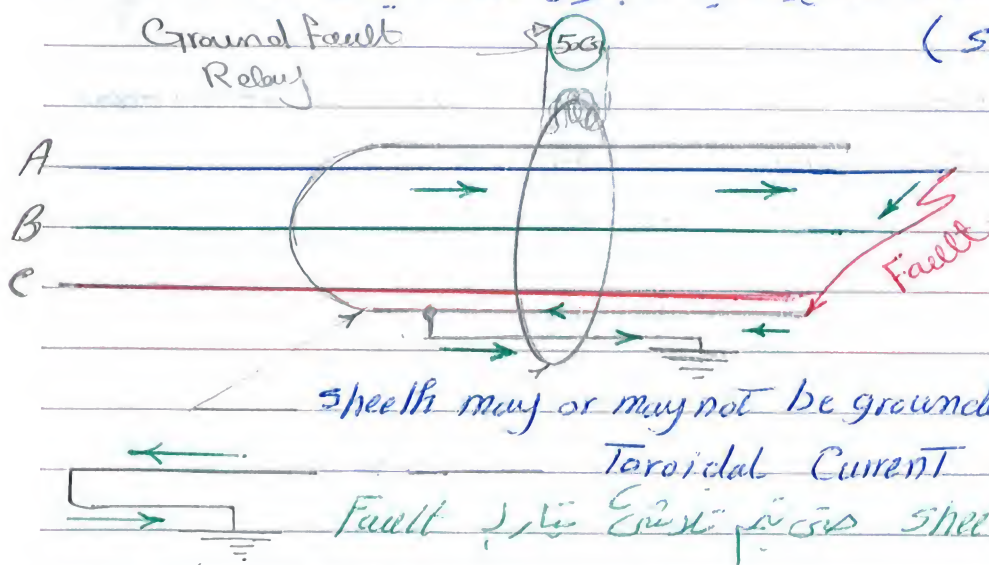 Ground Fault
Relay
50GS
(S
A
B
C
Fault
sheeth may or may not be ground
Toroidal Current
Fault shee